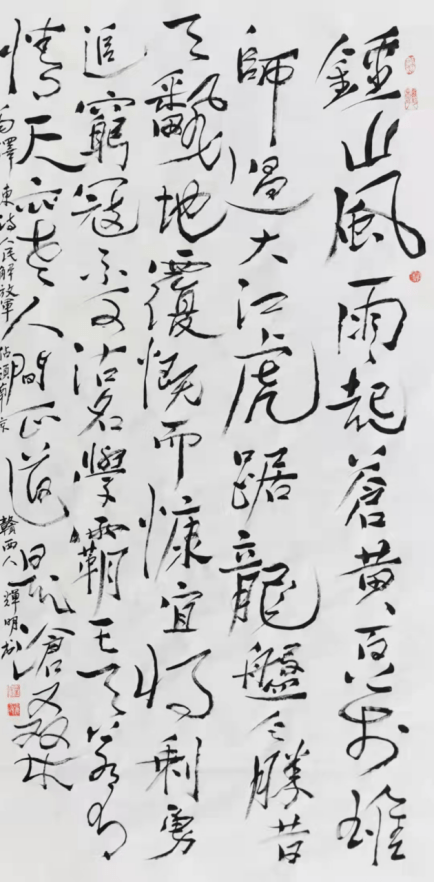 鍾山風雨起蒼黃百万雄
師過大江虎踞龍盤今勝昔
天飜地覆慨而慷宜将剩勇
追窮寇不可沽名學霸王天若有
情天亦老人間正道是滄桑
毛澤東詩人民解放軍佔領南京 贛西人 輝明